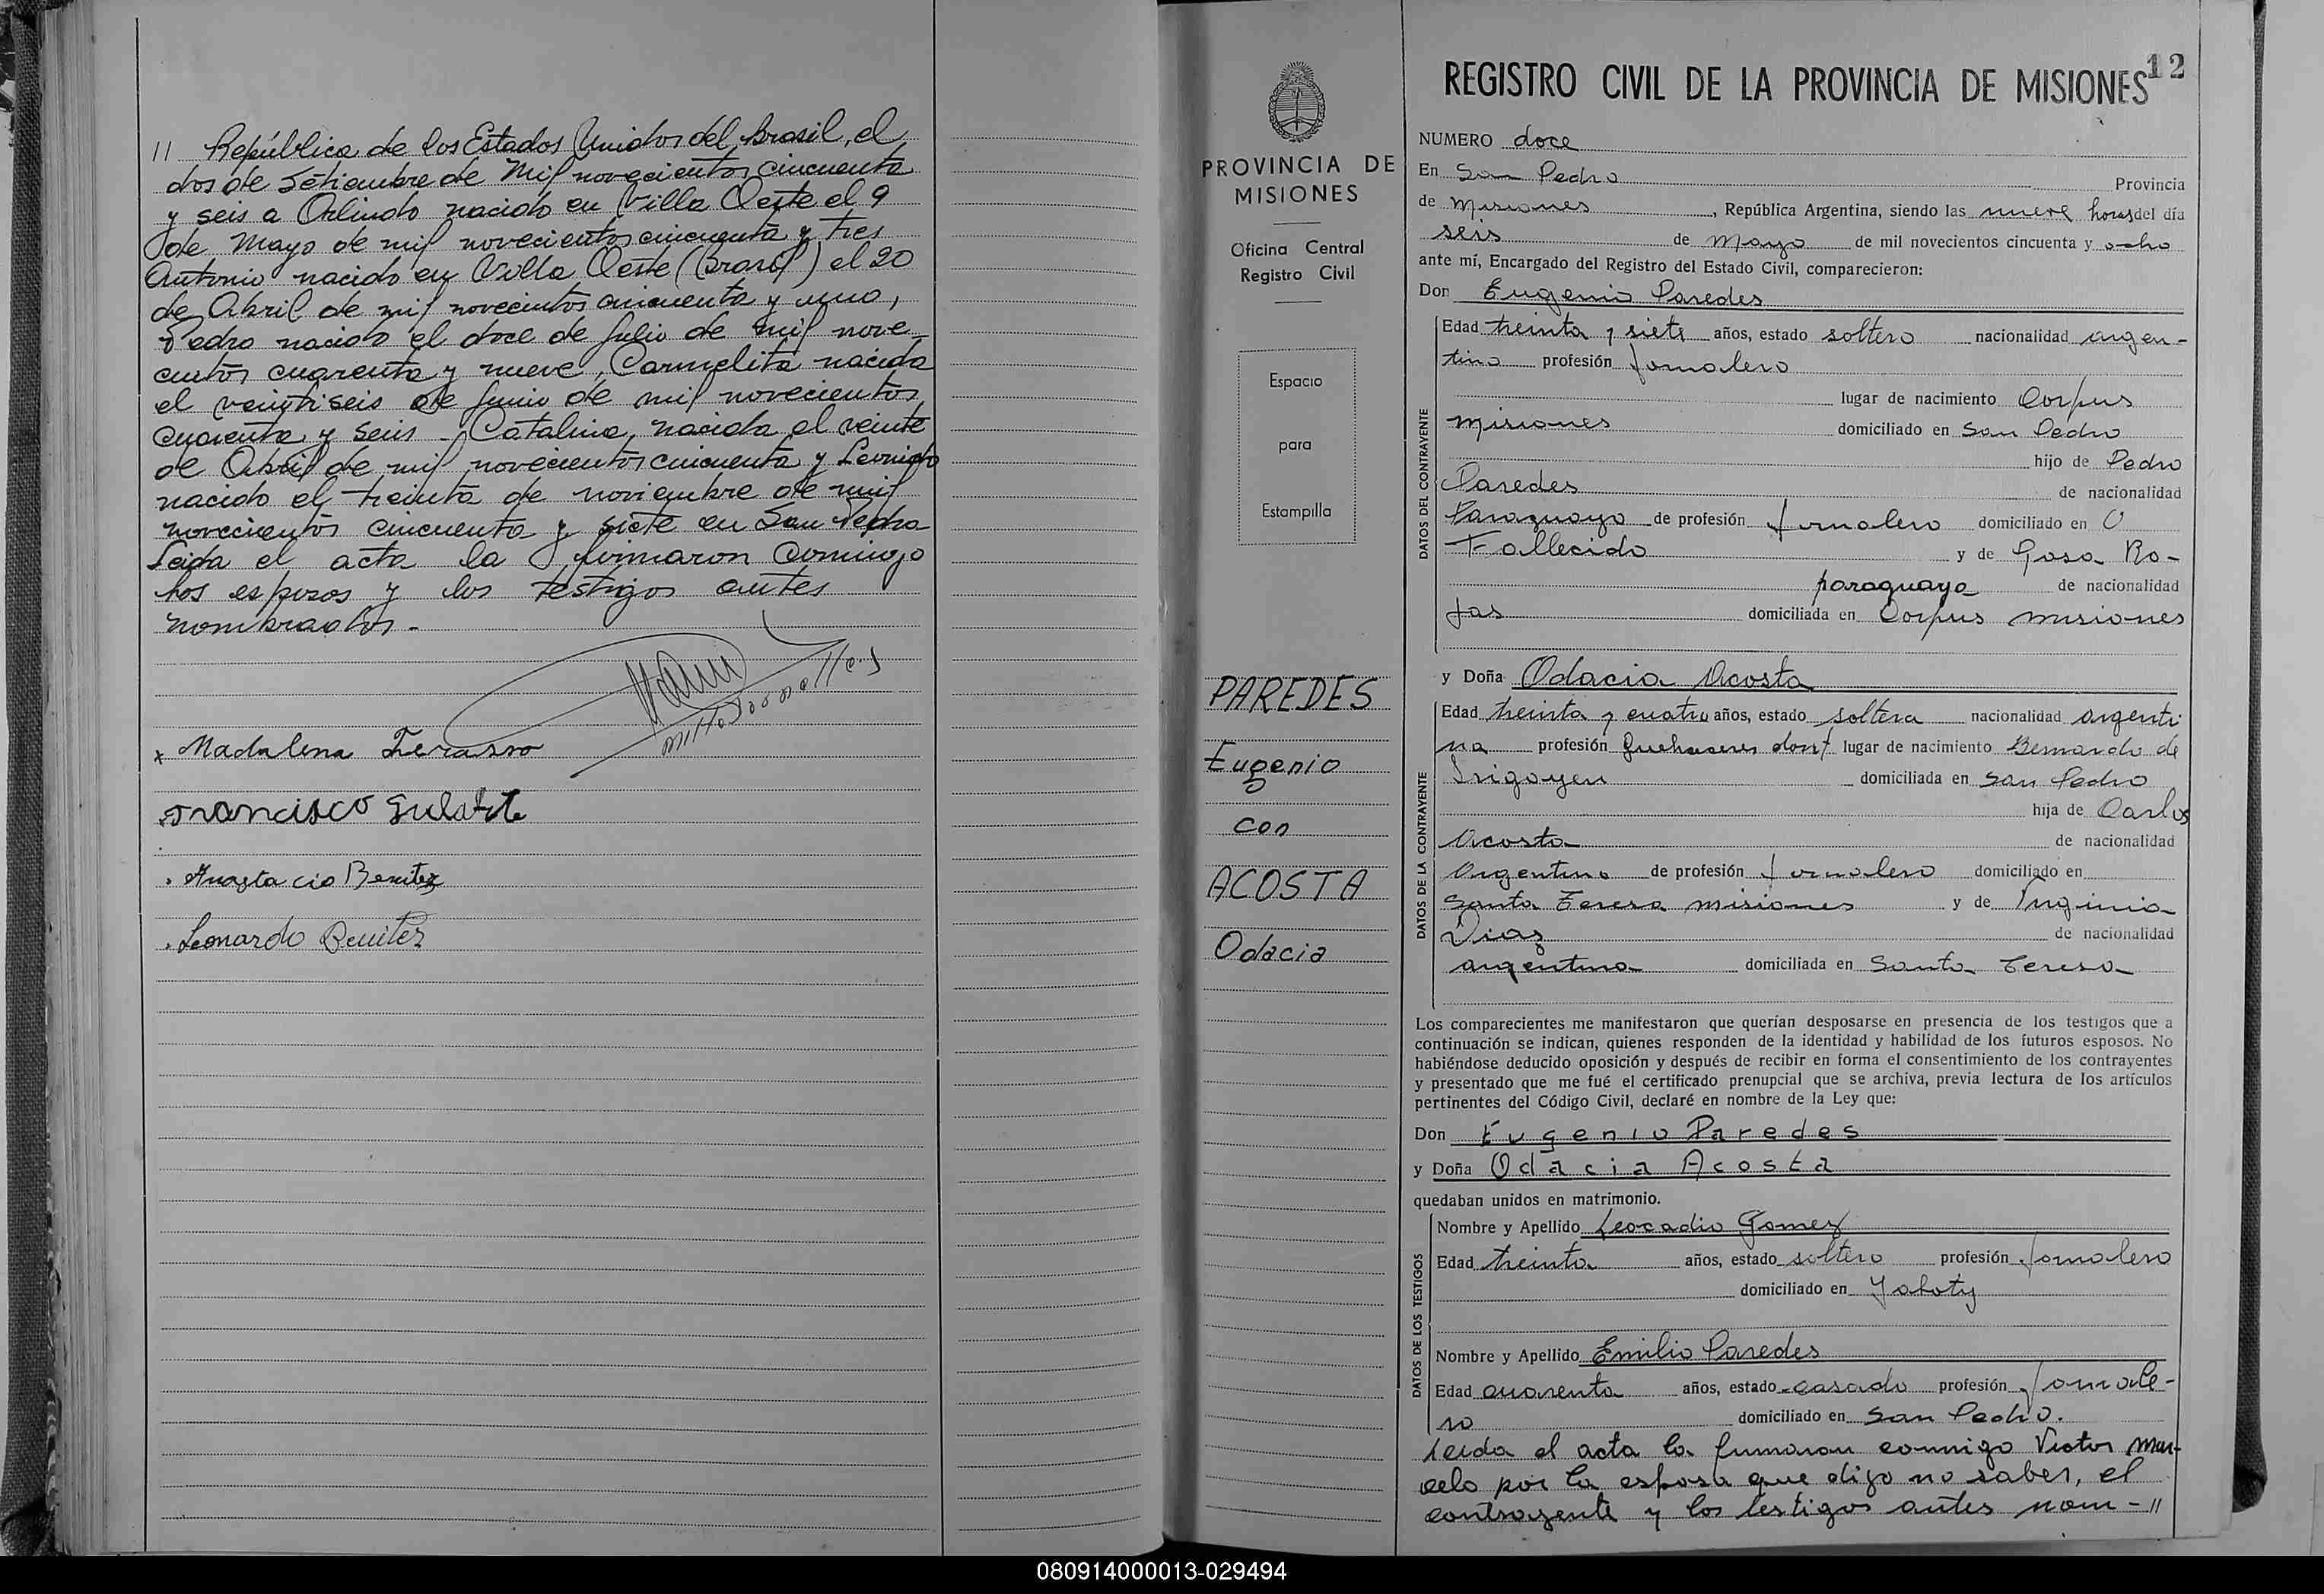 // República de los Estados Unidos del Brasil, el
dos de Setiembre de Mil novecientos cincuenta
y seis a Orlindo nacido en Villa Oeste el 9
de Mayo de mil novecientos cincuenta y tres
Antonio nacido en Villa Oeste (Brasil) el 20
de Abril de mil novecientos cincuenta y uno,
Pedro nacido el doce de Julio de mil nove
cientos cuarenta y nueve, Carmelita nacida
el veintiseis de Junio de mil novecientos
cuarenta y seis - Catalina, nacida el veinte
de Abril de mil novecientos cincuenta y Leonido
nacido el treinta de noviembre de mil
novecientos cincuenta y siete en San Pedro
Leida el acta la firmaron conmigo
los esposos y los testigos antes
nombrados.-
x Madalena Terasso
Francisco Gularte
Anastacio Benitez
Leonardo Benitez
PROVINCIA DE
MISIONES
Oficina Central
Registro Civil
Espacio
para
Estampilla
PAREDES
Eugenio
con
ACOSTA
Odacia
REGISTRO CIVIL DE LA PROVINCIA DE MISIONES 12
NUMERO doce
En San Pedro Provincia
de Misiones, República Argentina, siendo las nueve horas del día
seis de Mayo de mil novecientos cincuenta y ocho
ante mí, Encargado del Registro del Estado Civil, comparecieron:
Don Eugenio Paredes
DATOS DEL CONTRAYENTE
Edad treinta y siete años, estado soltero nacionalidad argen-
tino profesión Jornalero
lugar de nacimiento Corpus
Misiones domiciliado en San Pedro
hijo de Pedro
Paredes de nacionalidad
Paraguayo de profesión Jornalero domiciliado en
Fallecido y de Rosa Ro-
paraguaya de nacionalidad
jas domiciliada en Corpus Misiones
y Doña Odacia Acosta
DATOS DE LA CONTRAYENTE
Edad treinta y cuatro años, estado soltera nacionalidad argenti
na profesión Quehaceres domt lugar de nacimiento Bernardo de
Irigoyen domiciliada en San Pedro
hija de Carlos
Acosta de nacionalidad
Argentino de profesión Jornalero domiciliado en
Santa Teresa Misiones y de Inginia
Diaz de nacionalidad
argentina domiciliada en Santa Teresa
Los comparecientes me manifestaron que querían desposarse en presencia de los testigos que a
continuación se indican, quienes responden de la identidad y habilidad de los futuros esposos. No
habiéndose deducido oposición y después de recibir en forma el consentimiento de los contrayentes
y presentado que me fué el certificado prenupcial que se archiva, previa lectura de los artículos
pertinentes del Código Civil, declaré en nombre de la Ley que:
Don Eugenio Paredes
y Doña Odacia Acosta
quedaban unidos en matrimonio.
DATOS DE LOS TESTIGOS
Nombre y Apellido Leocadio Gomez
Edad treinta años, estado soltero profesión Jornalero
domiciliado en Yaboty
Nombre y Apellido Emilio Paredes
Edad cuarenta años, estado casado profesión Jornale-
ro domiciliado en San Pedro.
Leida el acta la firmaron conmigo Victor Mar-
celo por la esposa que dijo no saber, el
contrayente y los testigos antes nom-//
080914000013-029494